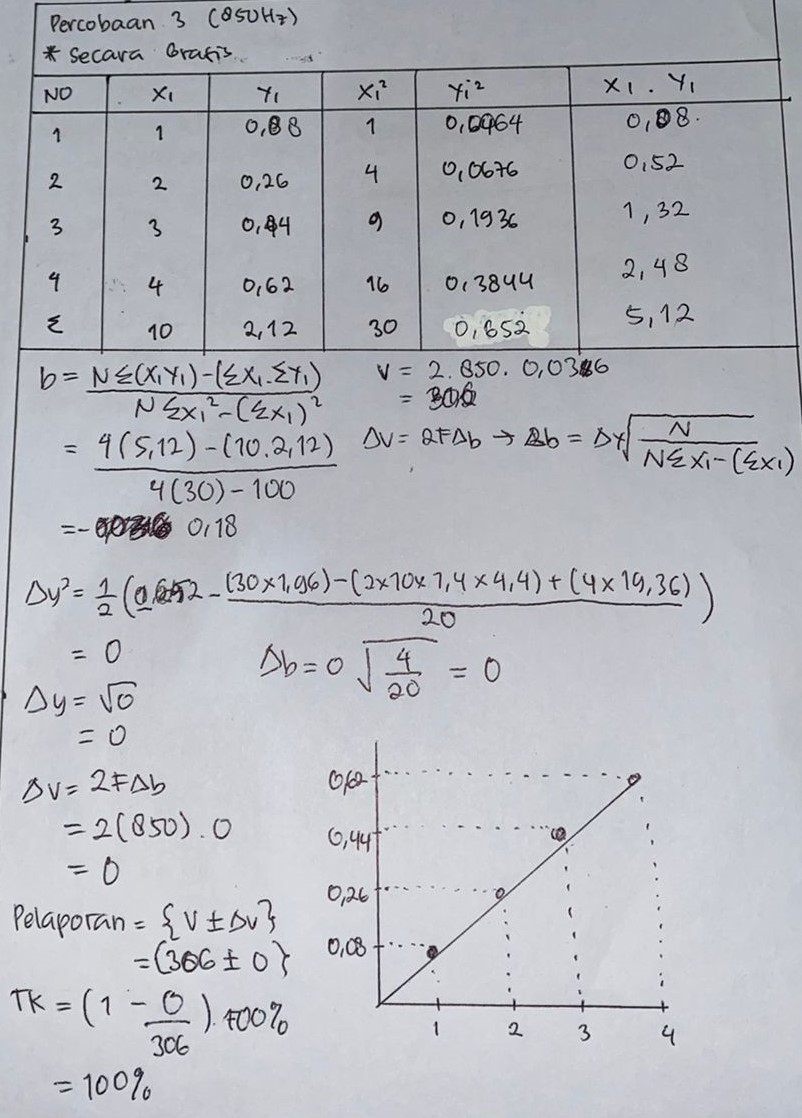 Percobaan 3 (850Hz)
* Secara Grafis
NO X1 Y1 Xi² Yi² X1 . Y1
1 1 0,08 1 0,0064 0,08
2 2 0,26 4 0,0676 0,52
3 3 0,44 9 0,1936 1,32
4 4 0,62 16 0,3844 2,48
Σ 10 2,12 30 0,652 5,12
b = NΣ(X1Y1)-(ΣX1.ΣY1) / NΣX1²-(ΣX1)²
V = 2.850.
= 306
= 4(5,12)-(10.2,12) / 4(30)-100
ΔV = 2FΔb → Δb = Δy√ N / NΣX1-(ΣX1)
= 0,18
Δy² = 1/2 (0,652 - (30x1,96)-(2x10x1,4x4,4)+(4x19,36) / 20)
= 0
Δb = 0 √ 4/20 = 0
Δy = √0
= 0
ΔV = 2FΔb
= 2(850).0
= 0
Pelaporan = {V ± ΔV}
= (306 ± 0}
TK = (1 - 0/306).100%
= 100%
0,62
0,44
0,26
0,08
1 2 3 4